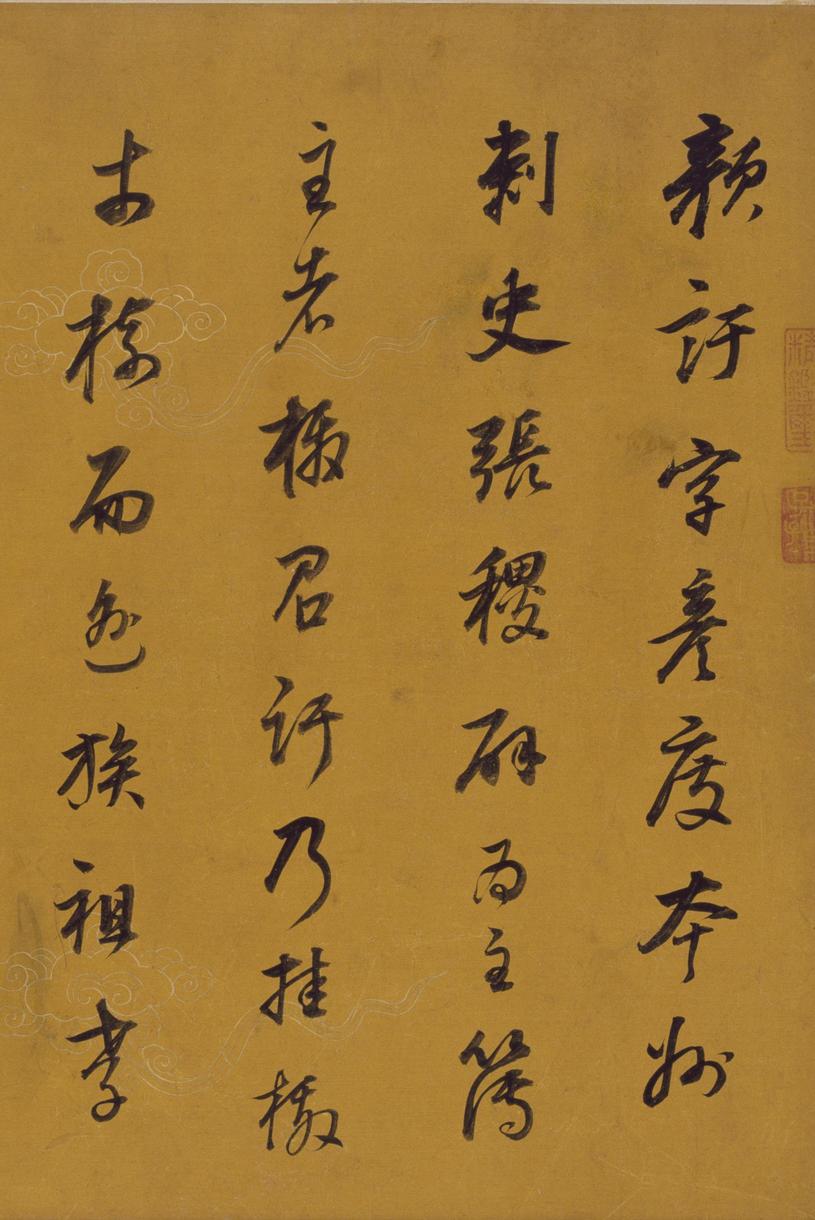 顏訏字彥度本州
刺史張稷辟為主簿
主者檄召訏乃挂檄
於樹而逃族祖孝